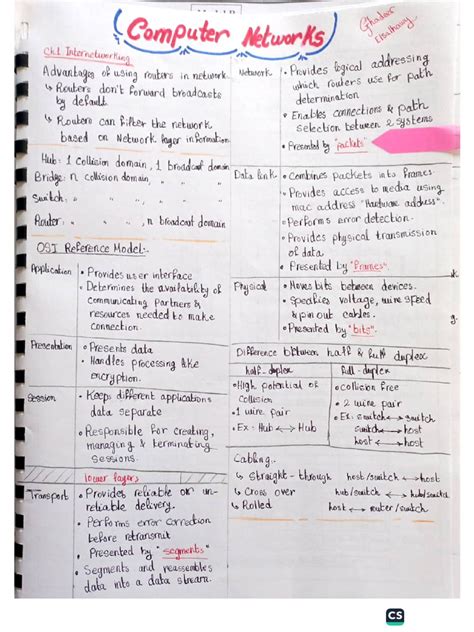 Computer Networks
Ghadeer
Ch.1 Internetworking
Advantages of using routers in network
↳ Routers don't forward broadcasts
by default.
↳ Routers can filter the network
based on Network layer information.
Hub: 1 collision domain, 1 broadcast domain
Bridge: n collision domain, " "
Switch: " " " "
Router: " ", n broadcast domain
OSI Reference Model:-
Application
• Provides user interface
• Determines the availability of
communicating partners &
resources needed to make
connection.
Presentation
• Presents data
• Handles processing like
encryption.
Session
• Keeps different applications
data separate
• Responsible for creating,
managing & terminating
sessions.
lower layers
Transport
• Provides reliable or un-
reliable delivery.
• Performs error correction
before retransmit
• Presented by "segments"
• Segments and reassembles
data into a data stream.
Network
• Provides logical addressing
which routers use for path
determination
• Enables connections & path
selection between 2 systems
• Presented by "packets"
Data link
• Combines packets into frames.
• Provides access to media using
mac address "Hardware address".
• Performs error detection.
• Provides physical transmission
of data
• Presented by "frames".
Physical
• Moves bits between devices.
• Specifies voltage, wire speed
& pin out cables.
• Presented by "bits".
Difference between half & full duplex
half-duplex
• High potential of
collision
• 1 wire pair
• Ex: Hub ↔ Hub
full-duplex
• collision free
• 2 wire pair
• Ex: switch ↔ switch
switch ↔ host
host ↔ host
Cabling..
↳ Straight-through host/switch ↔ host
↳ Cross over hub/switch ↔ hub/switch
↳ Rolled host ↔ router/switch
CS